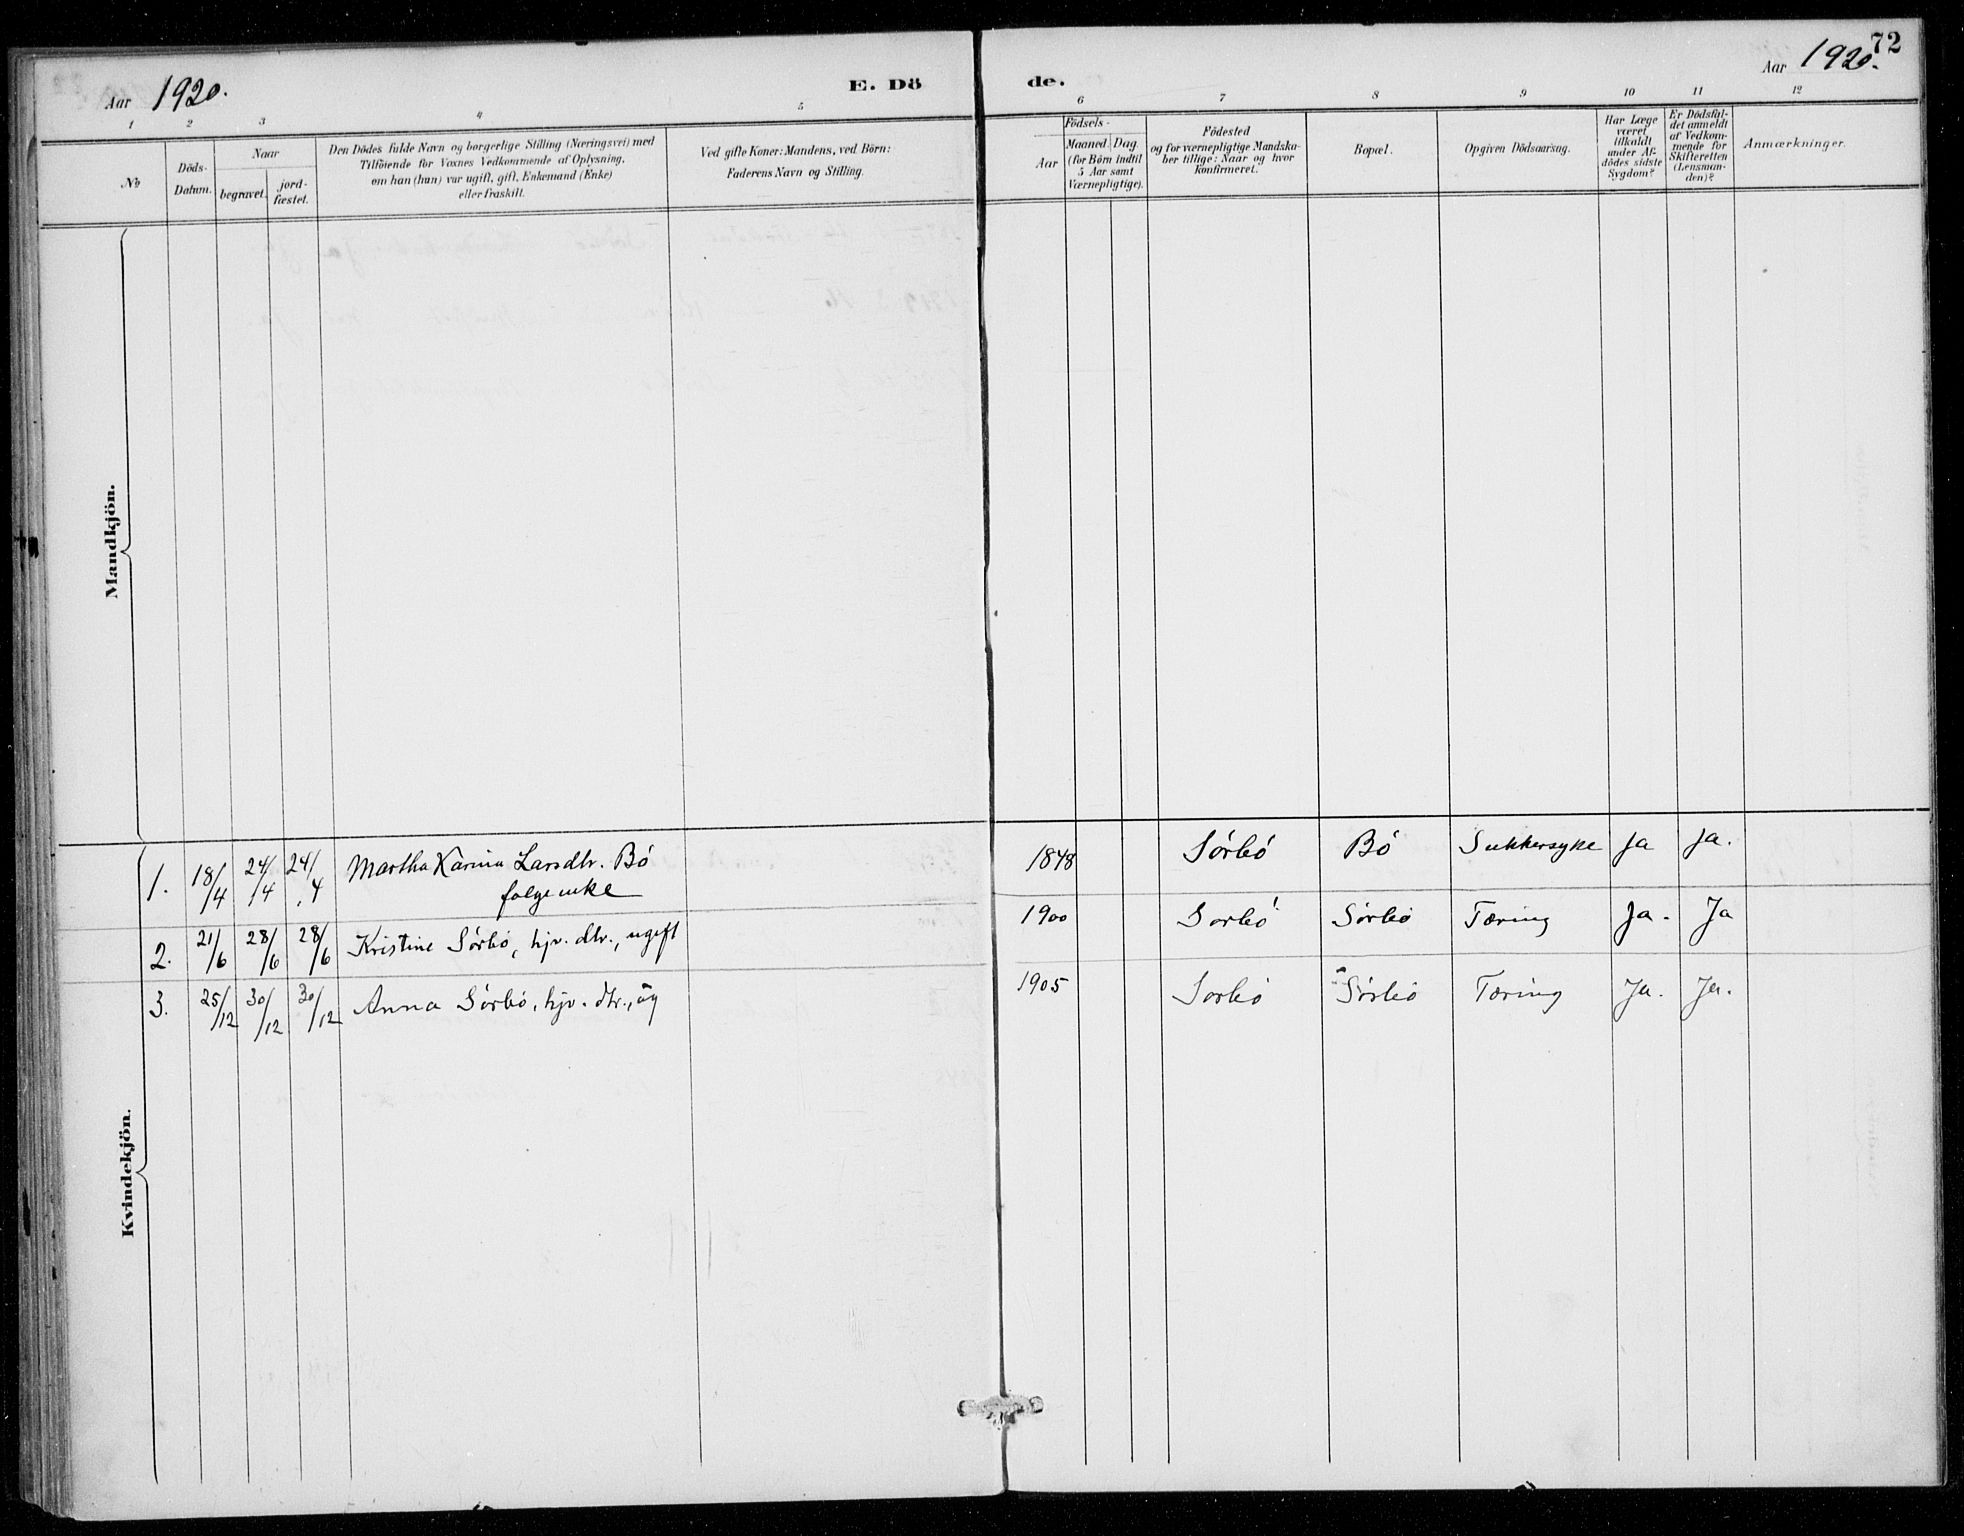 Aar 1920.
E. Döde.
Aar 1920.
72
1 2 3 4 5 6 7 8 9 10 11 12
№
Döds-Datum.
Naar
begravet.
jord-fæstet.
Den Dödes fulde Navn og borgerlige Stilling (Næringsvei) med
Tilföiende for Voxnes Vedkommende af Oplysning,
om han (hun) var ugift, gift, Enkemand (Enke)
eller fraskilt.
Ved gifte Koner: Mandens, ved Börn:
Faderens Navn og Stilling.
Födsels-
Aar
Maaned. Dag.
(for Börn indtil
5 Aar samt
Værnepligtige).
Födested
og for værnepligtige Mandska-
ber tillige: Naar og hvor
konfirmeret.
Bopæl.
Opgiven Dödsaarsag.
Har Læge
været
tilkaldt
under Af-
dödes sidste
Sygdom?
Er Dödsfal-
det anmeldt
af Vedkom-
mende for
Skifteretten
(Lensman-
den)?
Anmærkninger.
Mandkjön.
Kvindekjön.
1. 18/4 24/4 24/4 Martha Karina Larsdtr. Bö 1848 Sörbö Bö Sukkersyke Ja Ja.
folgeenke
2. 21/6 28/6 28/6 Kristine Sörbö, hjv. dtr., ugift 1900 Sorbö Sörbö Tæring Ja. Ja
3. 25/12 30/12 30/12 Anna Sörbö, hjv. dtr., ug 1905 Sorbö Sörbö Tæring Ja. Ja.